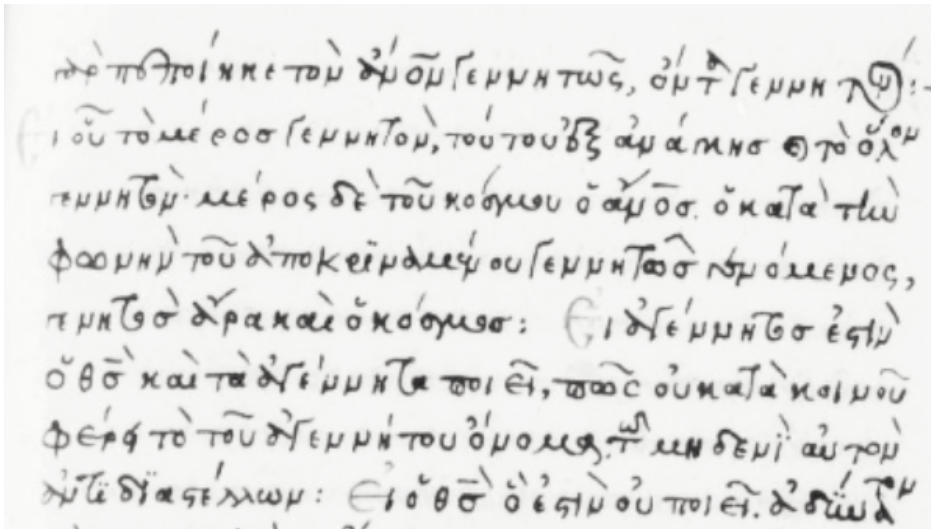 πεποίηκε τὸν ἄνον γεννητῶς, ὄντα γεννητόν:-
Εἰ οὗ τὸ μέρος γεννητὸν, τούτου ἐξ ἀνάγκης καὶ τὸ ὅλον
γεννητόν· μέρος δὲ τοῦ κόσμου ὁ ἄνος. ὁ κατὰ τὴν
φωνὴν τοῦ ἀποκριναμένου γεννητῶς γενόμενος,
γεννητὸς ἄρα καὶ ὁ κόσμος: Εἰ ἀγέννητός ἐστιν
ὁ θς καὶ τὰ ἀγέννητα ποιεῖ, πῶς οὐ κατὰ κοινοῦ
φέρει τὸ τοῦ ἀγεννήτου ὄνομα, τῶ μηδενὶ αὐτὸν
ἀντιδιαστέλλων: Εἰ ὁ θς ὃ ἔστιν οὐ ποιεῖ. ἀδύνατον